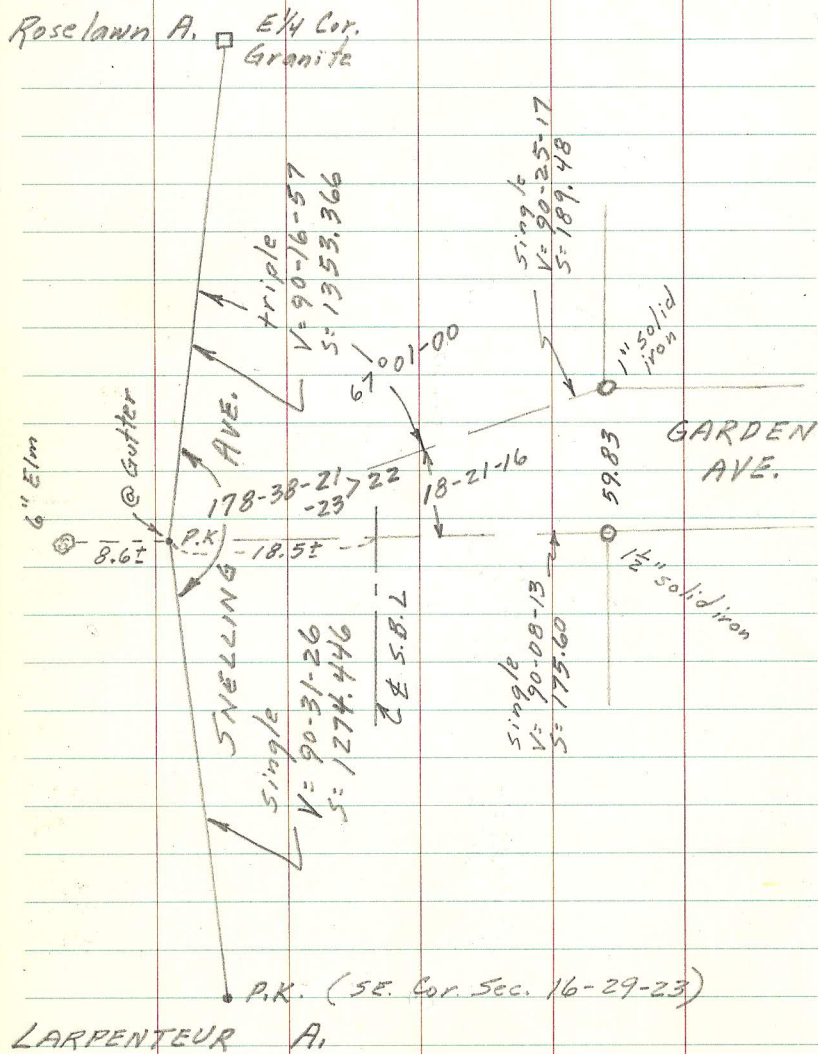 Roselawn A.
E1/4 Cor.
Granite
triple
V= 90-16-57
S= 1353.366
single
V= 90-25-17
S= 189.48
67°01-00
1" solid
iron
6" Elm
@ Gutter
AVE.
GARDEN
AVE.
59.83
178-38-21
-23 > 22
18-21-16
P.K
8.6±
18.5±
1½" solid iron
SNELLING
single
V= 90-31-26
S= 1274.446
℄ S.B.L
single
V= 90-08-13
S= 175.60
P.K. (SE. Cor. Sec. 16-29-23)
LARPENTEUR A.